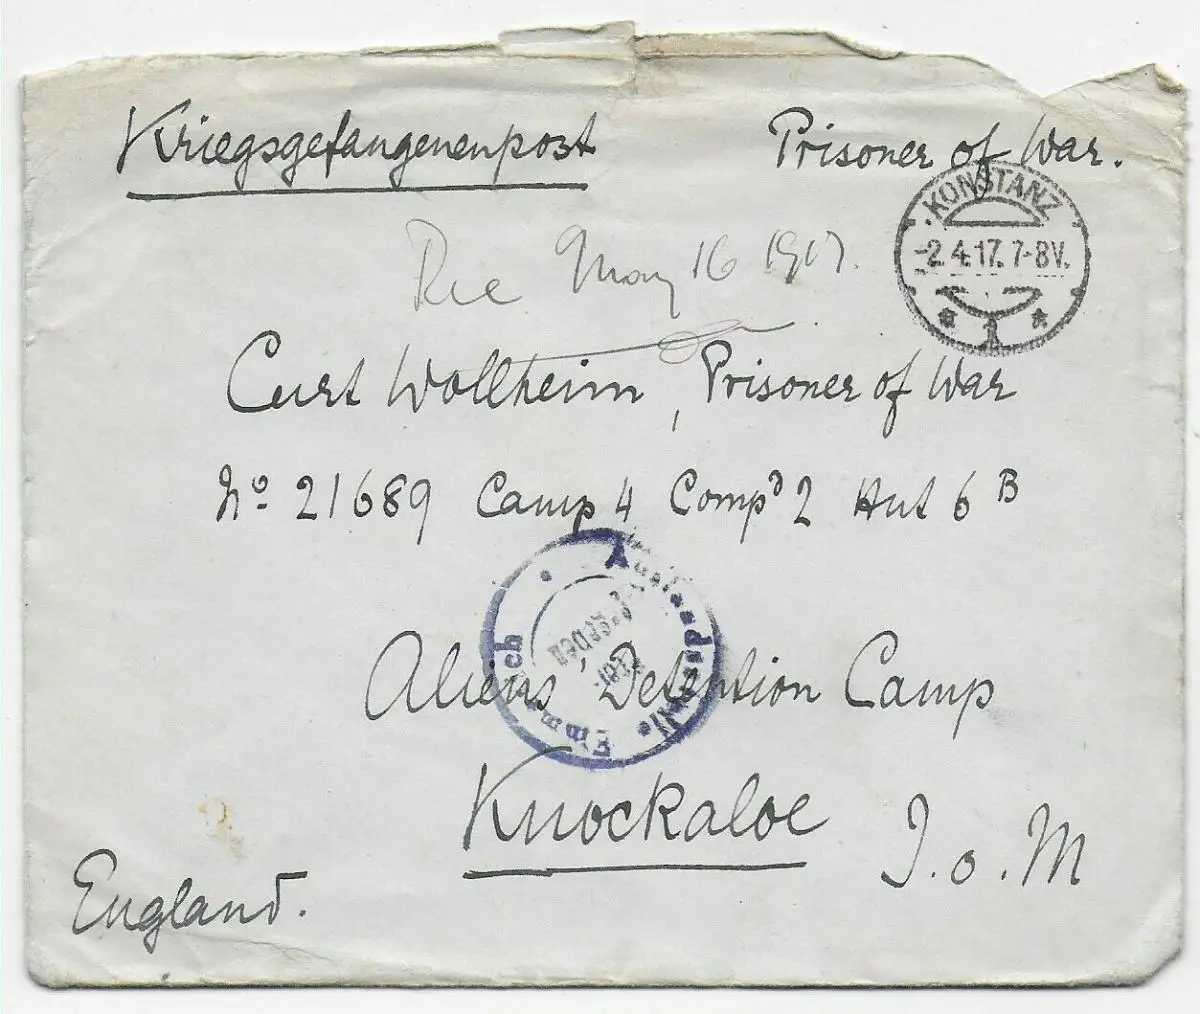 Kriegsgefangenenpost Prisoner of War.
KONSTANZ
-2.4.17. 7-8V.
* 1 *
Rec May 16 1917.
Curt Wollheim, Prisoner of War
No 21689 Camp 4 Compd 2 Hut 6 B
Auslandsstelle Emmerich
Aliens' Detention Camp
Knockaloe I.o.M
England.